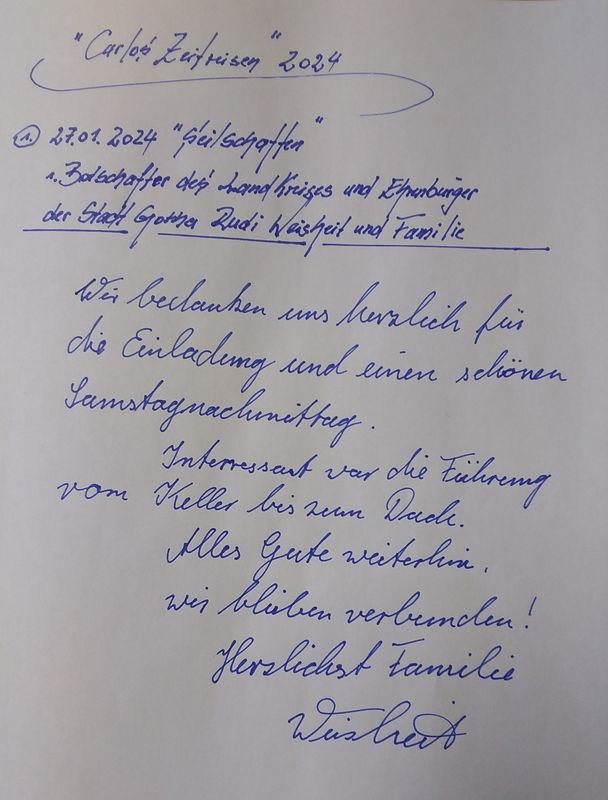 "Carlos' Zeitreisen" 2024
1. 27.01.2024 "Seilschaften"
Botschafter des Landkreises und Ehrenbürger
der Stadt Gotha Rudi Weisheit und Familie
Wir bedanken uns herzlich für
die Einladung und einen schönen
Samstagnachmittag.
Interressant war die Führung
vom Keller bis zum Dach.
Alles Gute weiterhin,
wir bleiben verbunden!
Herzlichst Familie
Weisheit